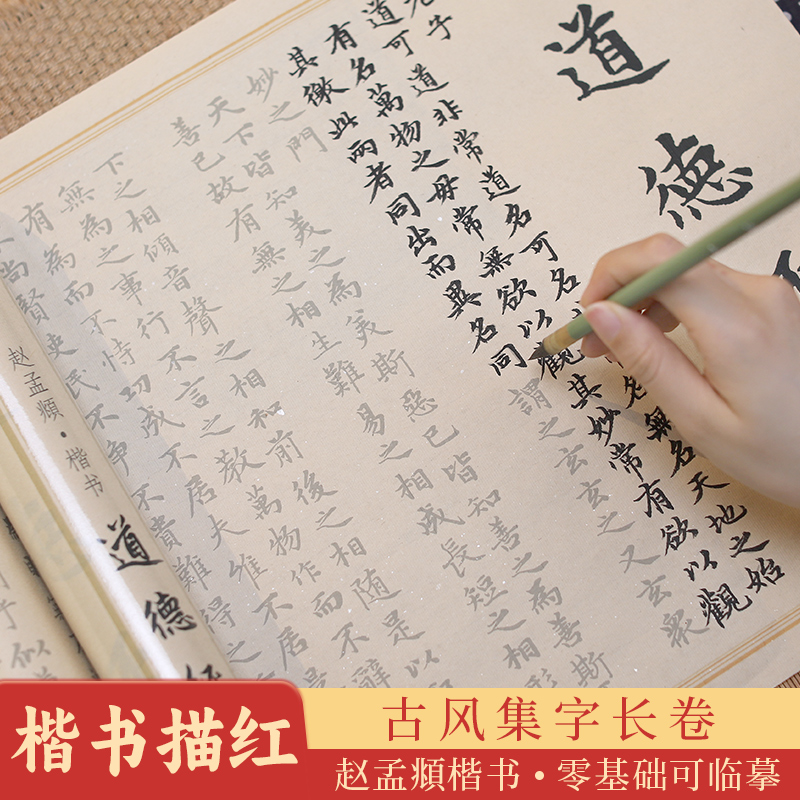 道德
老子
道可道非常道名可名名無名天地之始
有名萬物之母常無欲以觀其妙常有欲以觀
其徼此兩者同出而異名同謂之玄玄之又玄衆
妙之門
天下皆知美之為美斯惡已皆知善之為善斯
善已故有無之相生難易之相成長短之相形
下之相傾音聲之相和前後之相隨是以
無為之事行不言之教萬物作而不辭
有為而不恃功成不居夫維不居
尚賢使民不爭不貴難得之
赵孟頫·楷书
道德
楷书描红
古风集字长卷
赵孟頫楷书·零基础可临摹